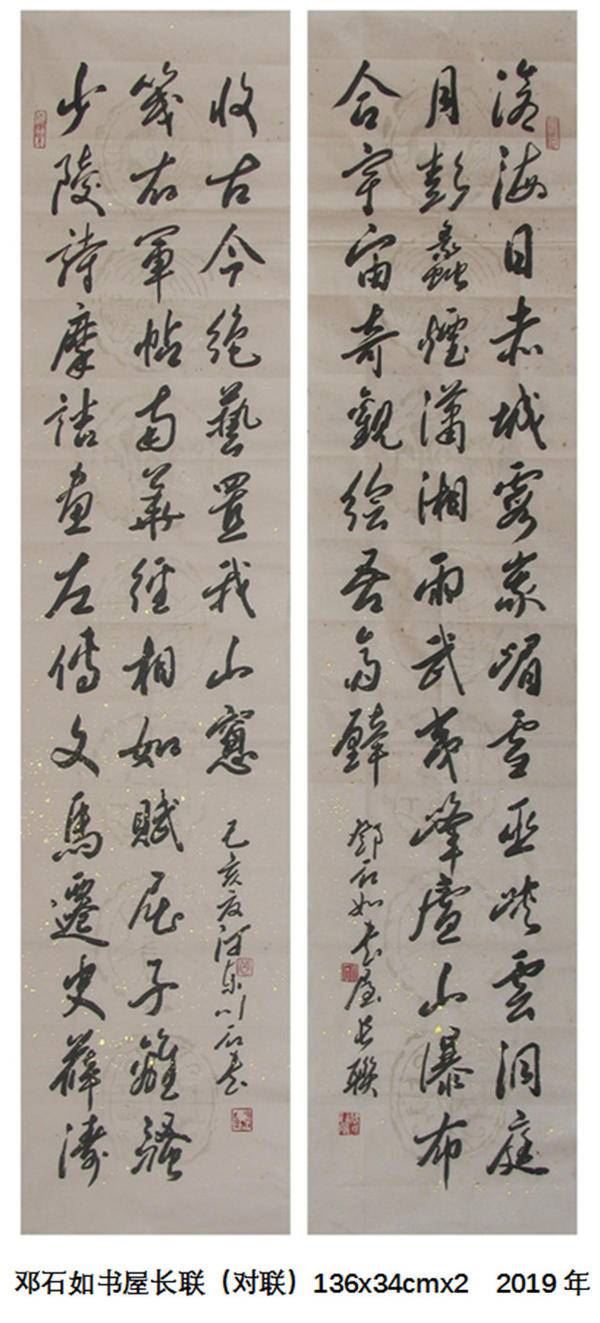 滄海日赤城霞峩嵋雪巫峽雲洞庭
月彭蠡煙瀟湘雨武夷峯廬山瀑布
合宇宙奇觀繪吾齋壁
鄧石如書屋長聯
少陵詩摩詰畫左傳文馬遷史薛濤
箋右軍帖南華經相如賦屈子離騷
收古今絕藝置我山窻
己亥夏河東川石書
邓石如书屋长联（对联）136x34cmx2 2019年